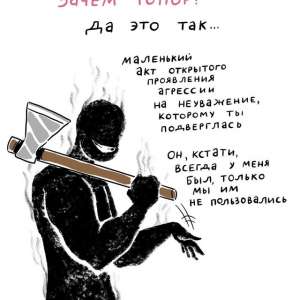 ЗАЧЕМ ТОПОР?
ДА ЭТО ТАК...
МАЛЕНЬКИЙ
АКТ ОТКРЫТОГО
ПРОЯВЛЕНИЯ
АГРЕССИИ
НА НЕУВАЖЕНИЕ,
КОТОРОМУ ТЫ
ПОДВЕРГЛАСЬ
ОН, КСТАТИ,
ВСЕГДА У МЕНЯ
БЫЛ, ТОЛЬКО
МЫ ИМ
НЕ ПОЛЬЗОВАЛИСЬ